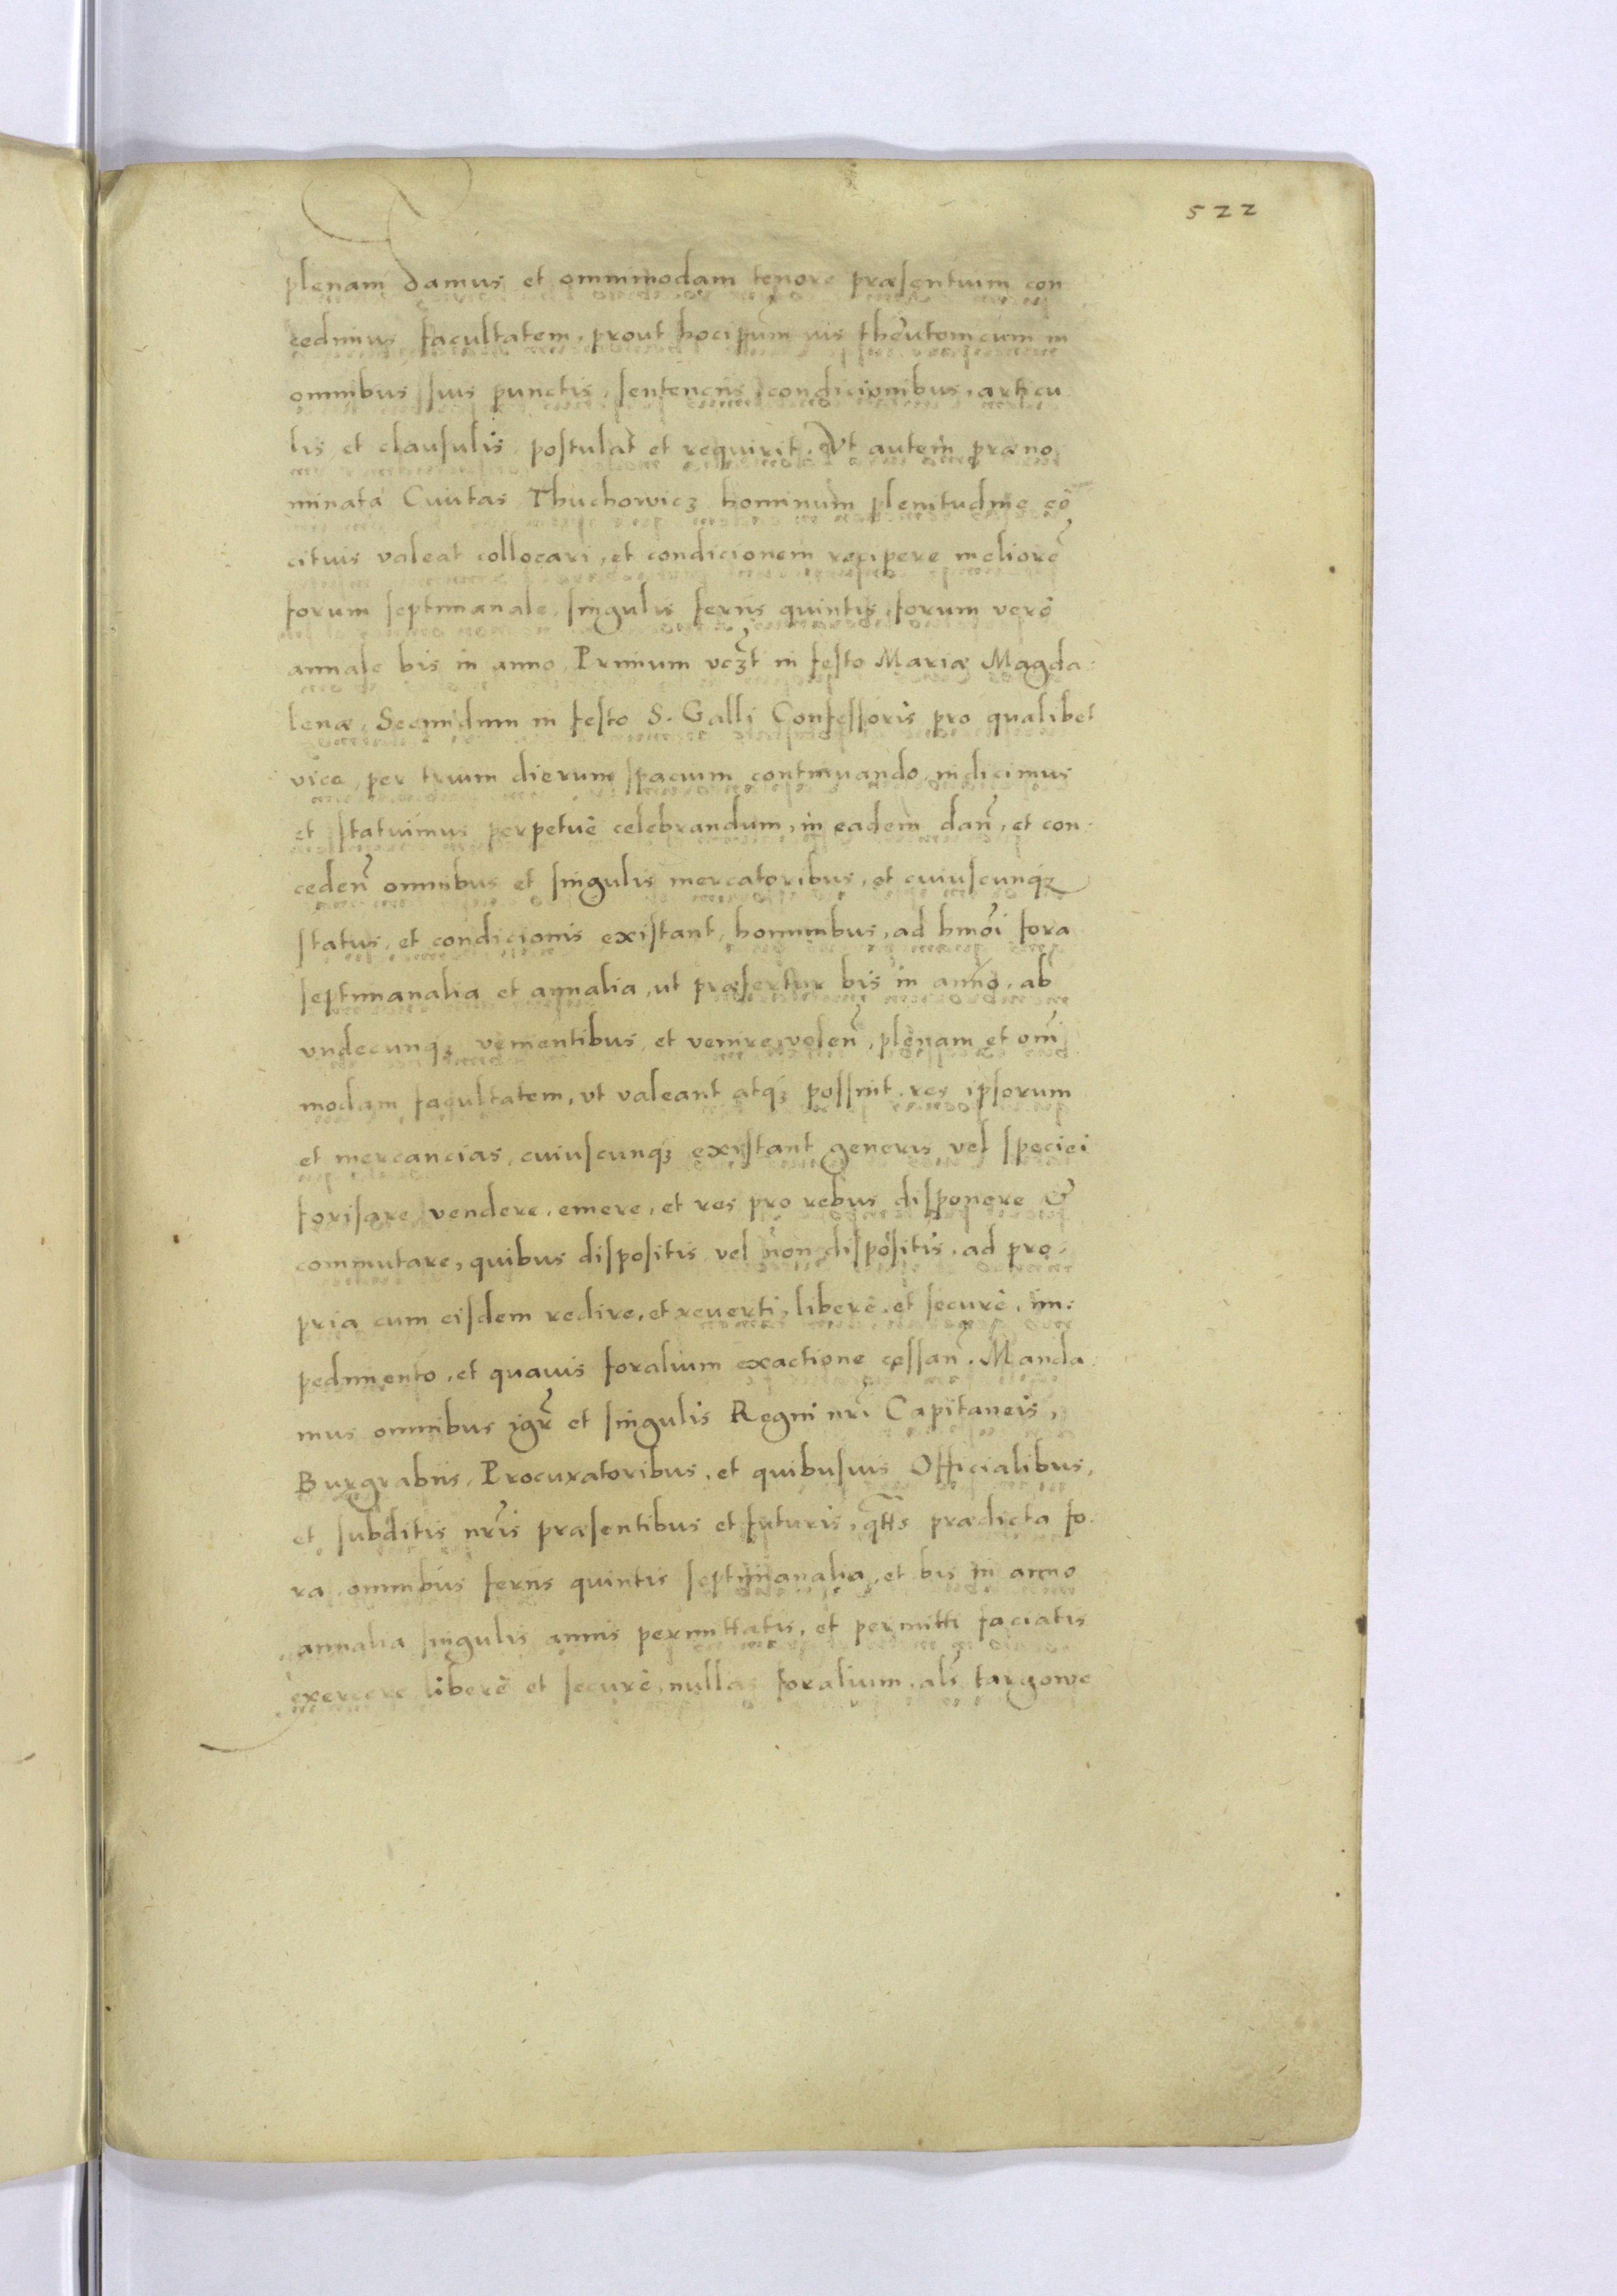 522
plenam damus et omnimodam tenore præsentium con
cedimus facultatem, prout hocipsum ius theutonicum in
omnibus suis punctis, sentencijs, condicionibus, articu
lis et clausulis postulat et requirit. Vt autem præno
minata Ciuitas Thuchowicz hominum plenitudine eò
cituis valeat collocari, et condicionem recipere meliorẽ
forum septimanale, singulis ferijs quintis, forum verò
annale bis in anno, Primum vczt in festo Mariæ Magda:
lenæ, Secundum in festo S. Galli Confessoris pro qualibet
vice, per trium dierum spacium continuando, indicimus
et statuimus perpetuè celebrandum, in eadem dañ, et con:
cedeñ omnibus et singulis mercatoribus, et cuiuscunq3
status, et condicionis existant, hominibus, ad hmoi fora
septimanalia et annalia, ut præfertur bis in anno, ab
vndecunq3 venientibus, et venire voleñ, plenam et omi
modam facultatem, vt valeant atq3 possint res ipsorum
et mercancias, cuiuscunq3 existant generis vel speciei
forisare vendere, emere, et res pro rebus disponere &
commutare, quibus dispositis vel non dispositis, ad pro:
pria cum eisdem redire, et reuerti, liberè, et securè, im:
pedimento, et quauis foralium exactione cessañ. Manda:
mus omnibus igr̃ et singulis Regni nr̃i Capitaneis,
Burgrabijs, Procuratoribus, et quibusuis Officialibus,
et subditis nr̃is præsentibus et futuris, qtt̃s prædicta fo:
ra omnibus ferijs quintis septimanalia, et bis in anno
annalia singulis annis permittatis, et permitti faciatis
exercere liberè et securè, nullas foralium, als̃ targowe